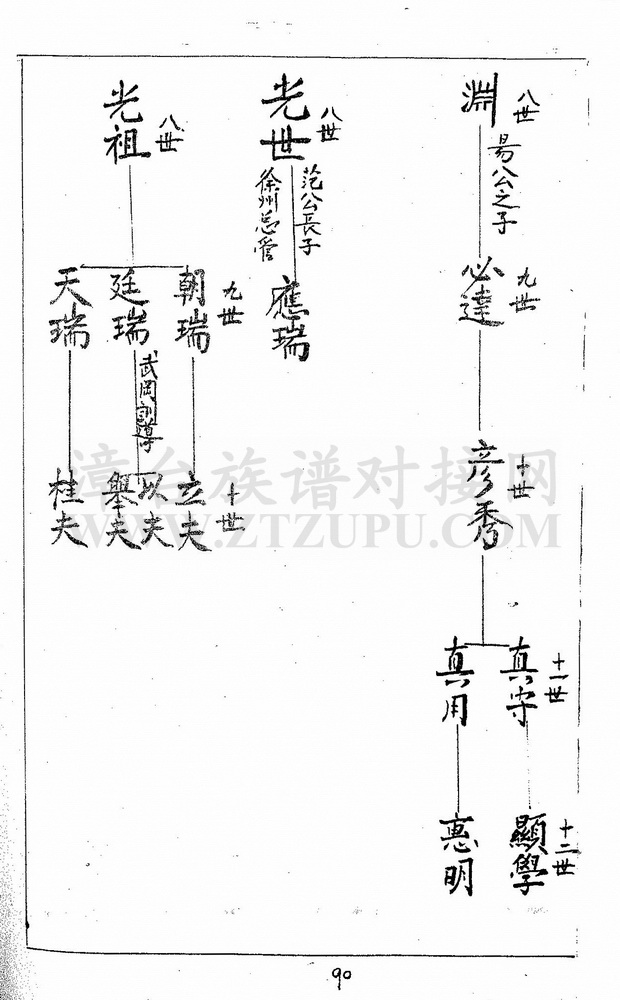 八世
淵
昜公之子
九世
必達
十世
彦秀
十一世
真守
真用
十二世
顯學
惠明
八世
光世
范公長子
徐州总管
應瑞
八世
光祖
九世
朝瑞
廷瑞
武岡
天瑞
十世
立夫
以夫
舉夫
桂夫
漳台族谱对接网
WWW.ZTZUPU.COM
90